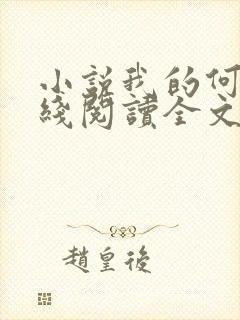 小說我的何
綫閱讀全文
趙皇後